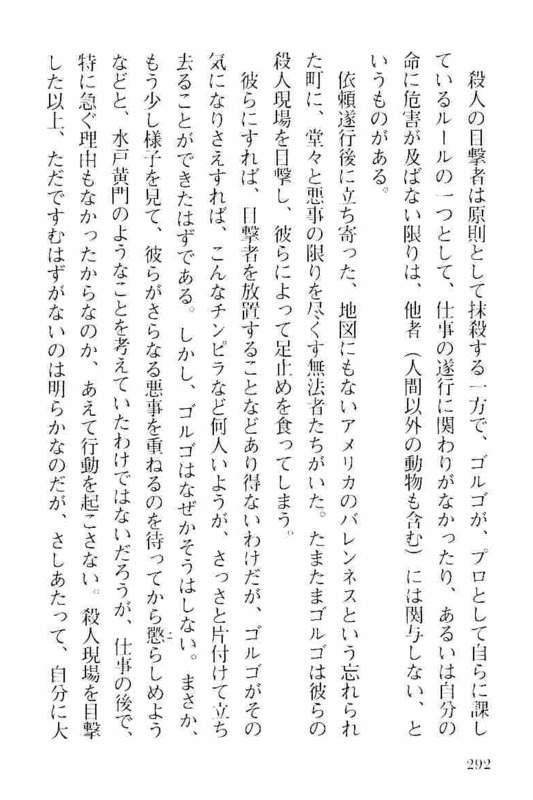 殺人の目撃者は原則として抹殺する一方で、ゴルゴが、プロとして自らに課し
ているルールの一つとして、仕事の遂行に関わりがなかったり、あるいは自分の
命に危害が及ばない限りは、他者（人間以外の動物も含む）には関与しない、と
いうものがある。
依頼遂行後に立ち寄った、地図にもないアメリカのバレンネスという忘れられ
た町に、堂々と悪事の限りを尽くす無法者たちがいた。たまたまゴルゴは彼らの
殺人現場を目撃し、彼らによって足止めを食ってしまう。
彼らにすれば、目撃者を放置することなどあり得ないわけだが、ゴルゴがその
気になりさえすれば、こんなチンピラなど何人いようが、さっさと片付けて立ち
去ることができたはずである。しかし、ゴルゴはなぜかそうはしない。まさか、
もう少し様子を見て、彼らがさらなる悪事を重ねるのを待ってから懲らしめよう
などと、水戸黄門のようなことを考えていたわけではないだろうが、仕事の後で、
特に急ぐ理由もなかったからなのか、あえて行動を起こさない。殺人現場を目撃
した以上、ただですむはずがないのは明らかなのだが、さしあたって、自分に大
292